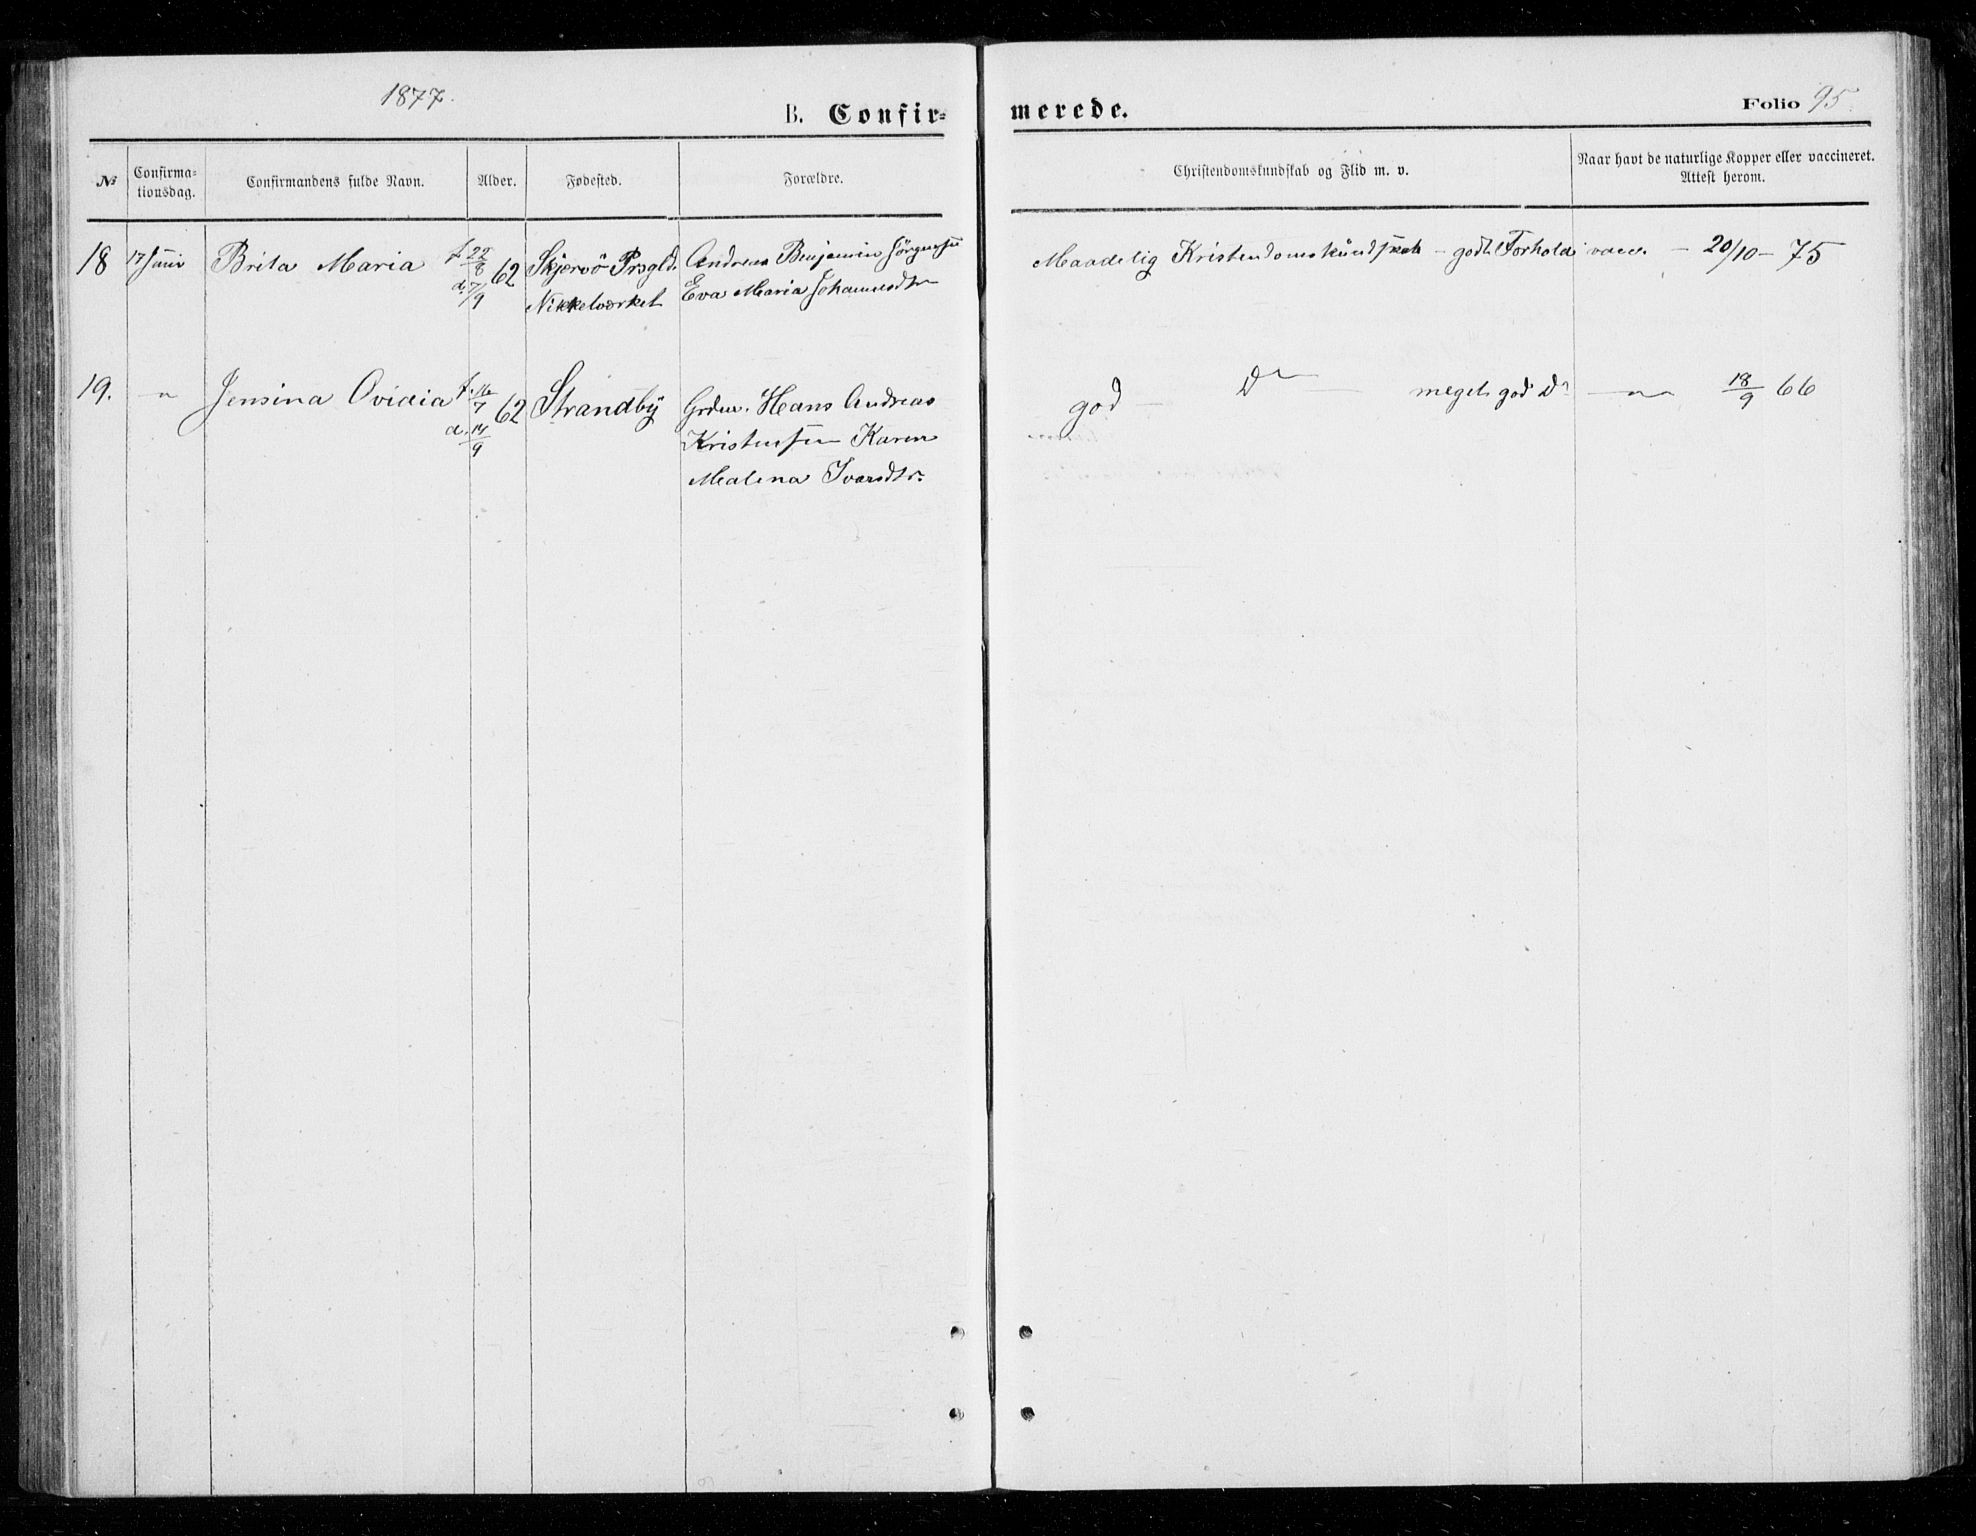 1877.
B. Confir-
merede.
Folio 95.
№
Confirma-
tionsdag.
Confirmandens fulde Navn.
Alder.
Fødested.
Forældre.
Christendomskundskab og Flid m. v.
Naar havt de naturlige Kopper eller vaccineret.
Attest herom.
18 17 Juni Brita Maria f. 22/8 62 Skjervö Prsgld. Andreas Benjamin Jörgensen Maadelig Kristendomskundskab - godt Forhold vacc. - 20/10 - 75
d. 7/9 Nikkelværket Eva Maria Johannesdtr
19. " Jensina Ovidia f. 16/7 62 Strandby Grdm. Hans Andreas god - Do - meget god Do - " - 18/9 66
d. 14/9 Kristensen Karen
Malena Ivarsdtr.